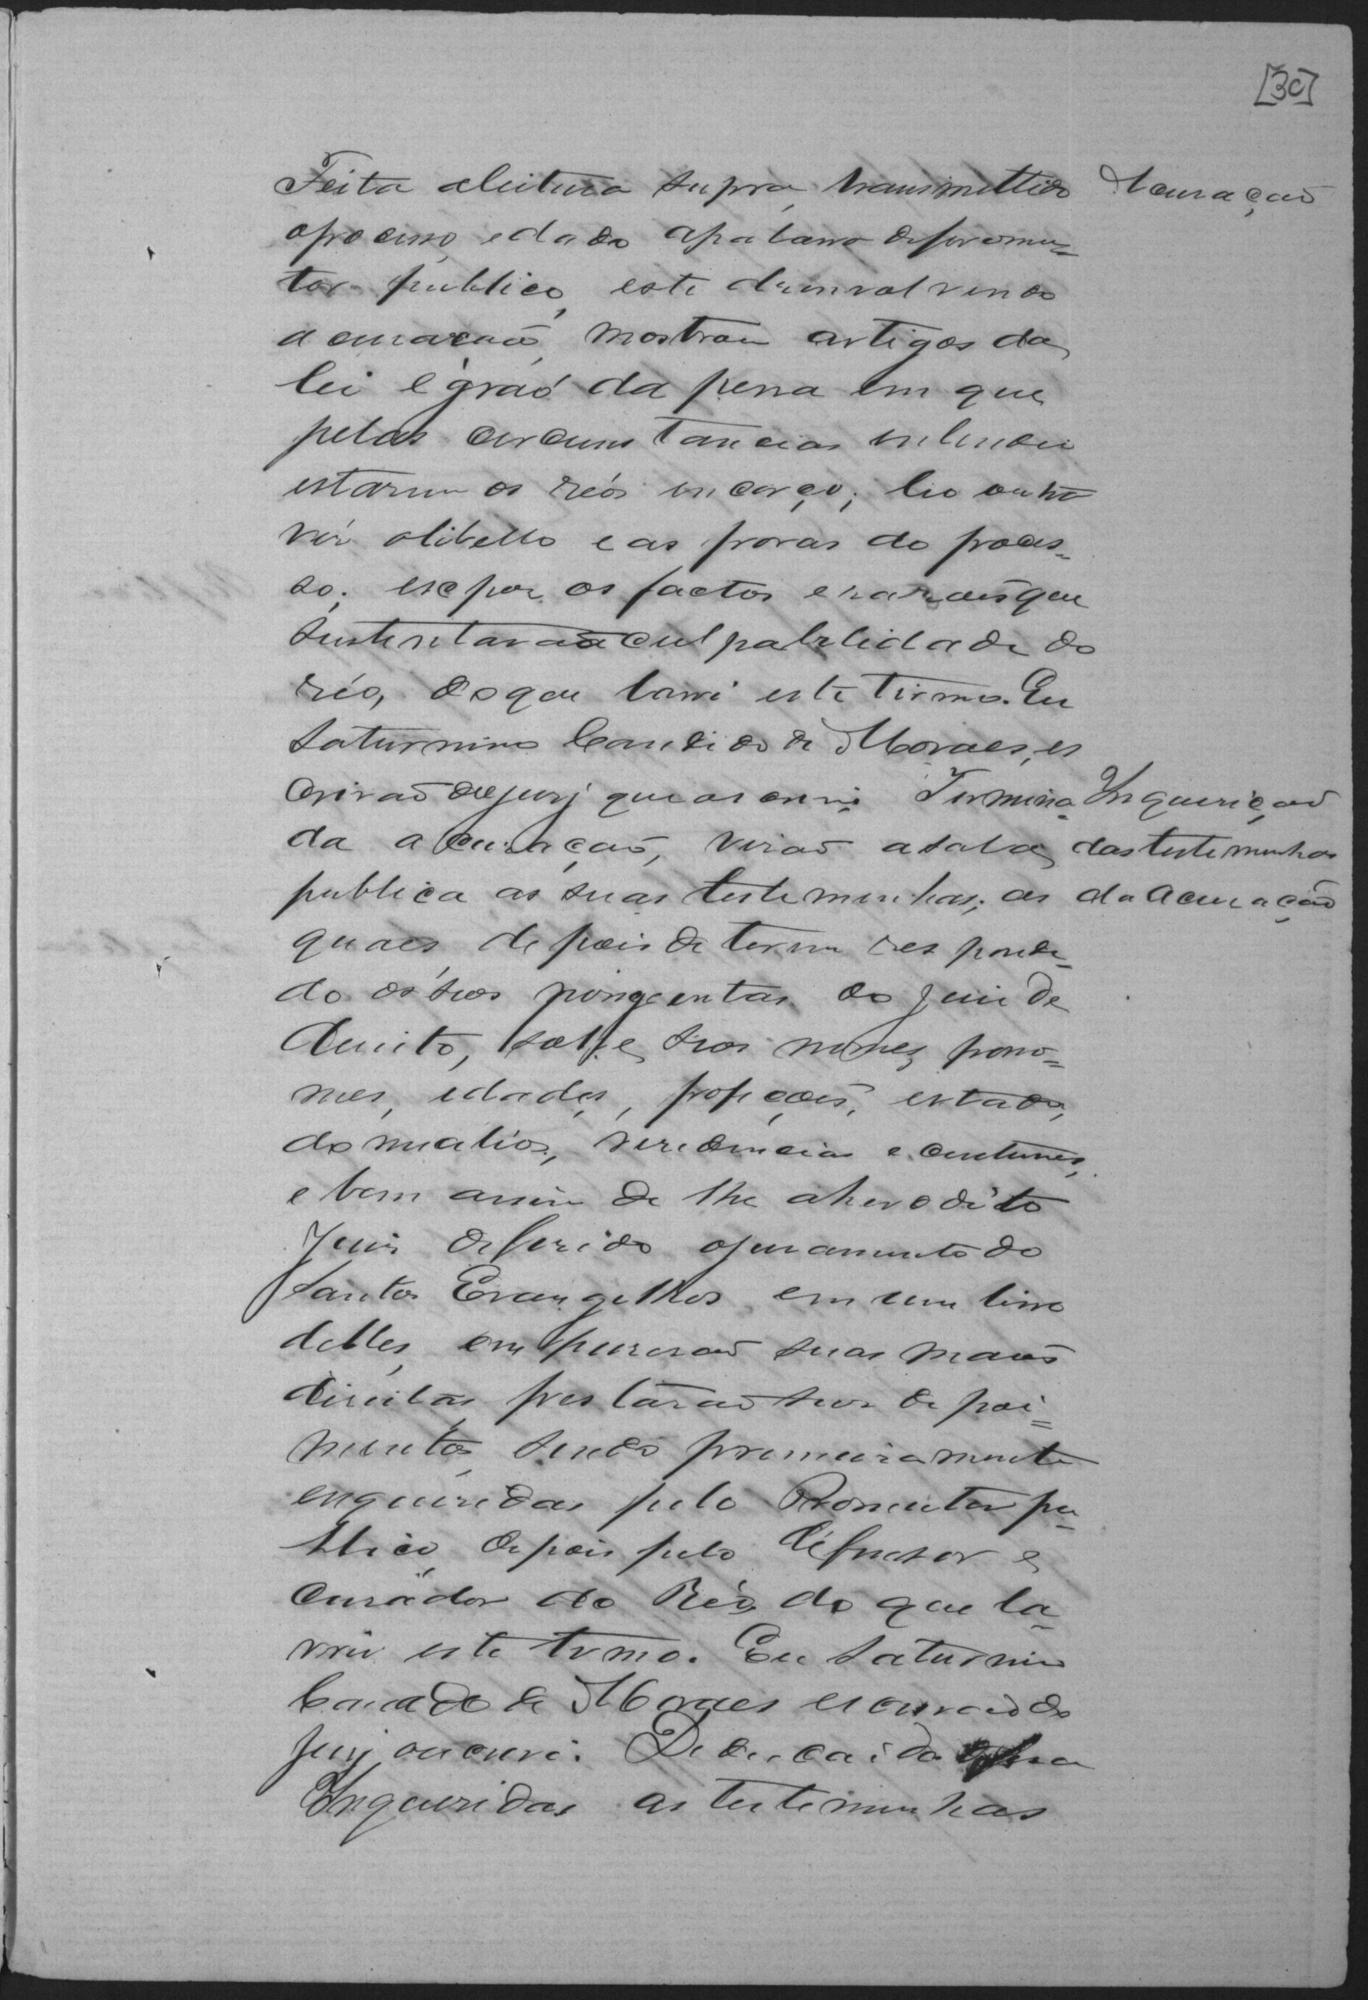 [30]
Feita aleitura supra, transmettido
Acuração
oprocesso, edada apalavra aopromo=
tor publico, este desenvolvendo
acuração, mostrou artigos da
lei e gráo da pena em que
pelas circumstancias entendeu
estarem os réos incorço; leo outra
vez olibello e as provas do proces=
so; expor os factos erazoens que
sustentavão aculpabilidade do
réo, doque lavrei este termo. Eu
Saturnino Candido de Moraes, es
crivão dojury que escrevi. Termina
da a acuração, virão asala
Inquerição
das testemunhas
da Acuração
publica as suas testemunhas; as
quaes depois de terem respondi=
do ás tres perguntas do Juiz de
direito, sobre seos nomes, prono=
mes, idades, profições, estado,
domicilios, rezidencias e custumes,
e bem assim de lhe aherodito
Juiz deferido ojuramento do
Santos Evangelhos, em um livro
delles, em puzerão suas mãos
direitas, prestarão seos depoi=
mentos, sendo primeiramente
enqueridas pelo Promutor pu=
blico, depois pelo defensor e
curador do Réo, do que la=
vrei este termo. Eu Saturnino
Candido de Moraes escrivão do
jury oescrevi.
Inqueridas as testemunhas